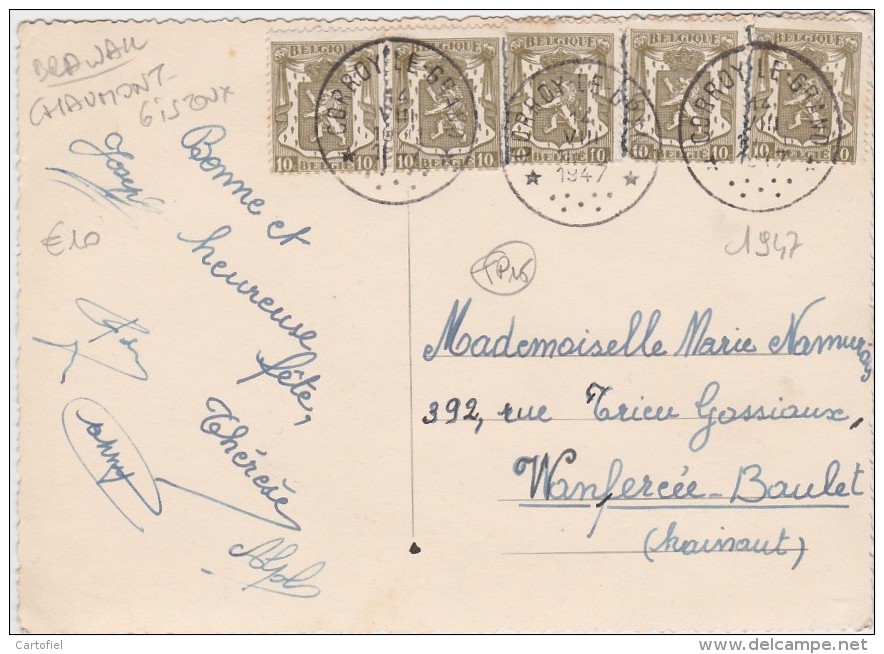 BELGIQUE BELGIQUE BELGIQUE BELGIQUE BELGIQUE
10 BELGIË 10 10 BELGIË 10 BELGIË 10 10 BELGIË 10 BELGIË 10
CORROY-LE-GRAND
14
VII
1947
CORROY-LE-GRAND
14
VII
1947
CORROY-LE-GRAND
14
VII
1947
CHAUMONT-
GISTOUX
€10
1947
Bonne et
heureuse
fête,
Thérèse
Mademoiselle Marie Namurois
392, rue Trieu Gossiaux,
Wanfercée-Baulet
(hainaut)
Cartofiel
www.delcampe.net